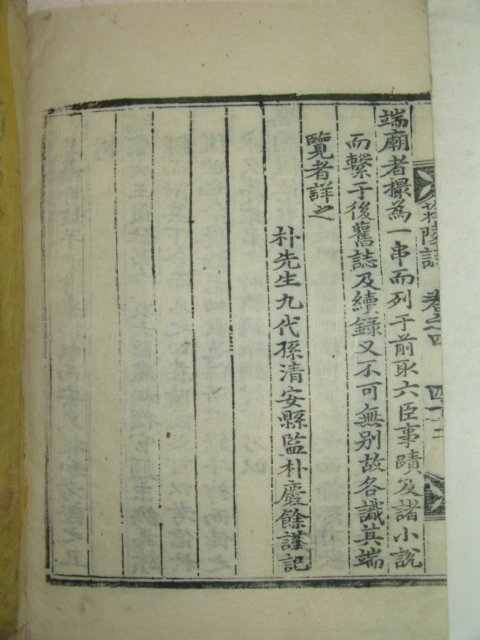 莊陵誌 卷之四
端廟者撮為一串而列于前取六臣事蹟及諸小說
而繫于後舊誌及續錄又不可無別故各識其端
覽者詳之
朴先生九代孫清安縣監朴慶餘謹記